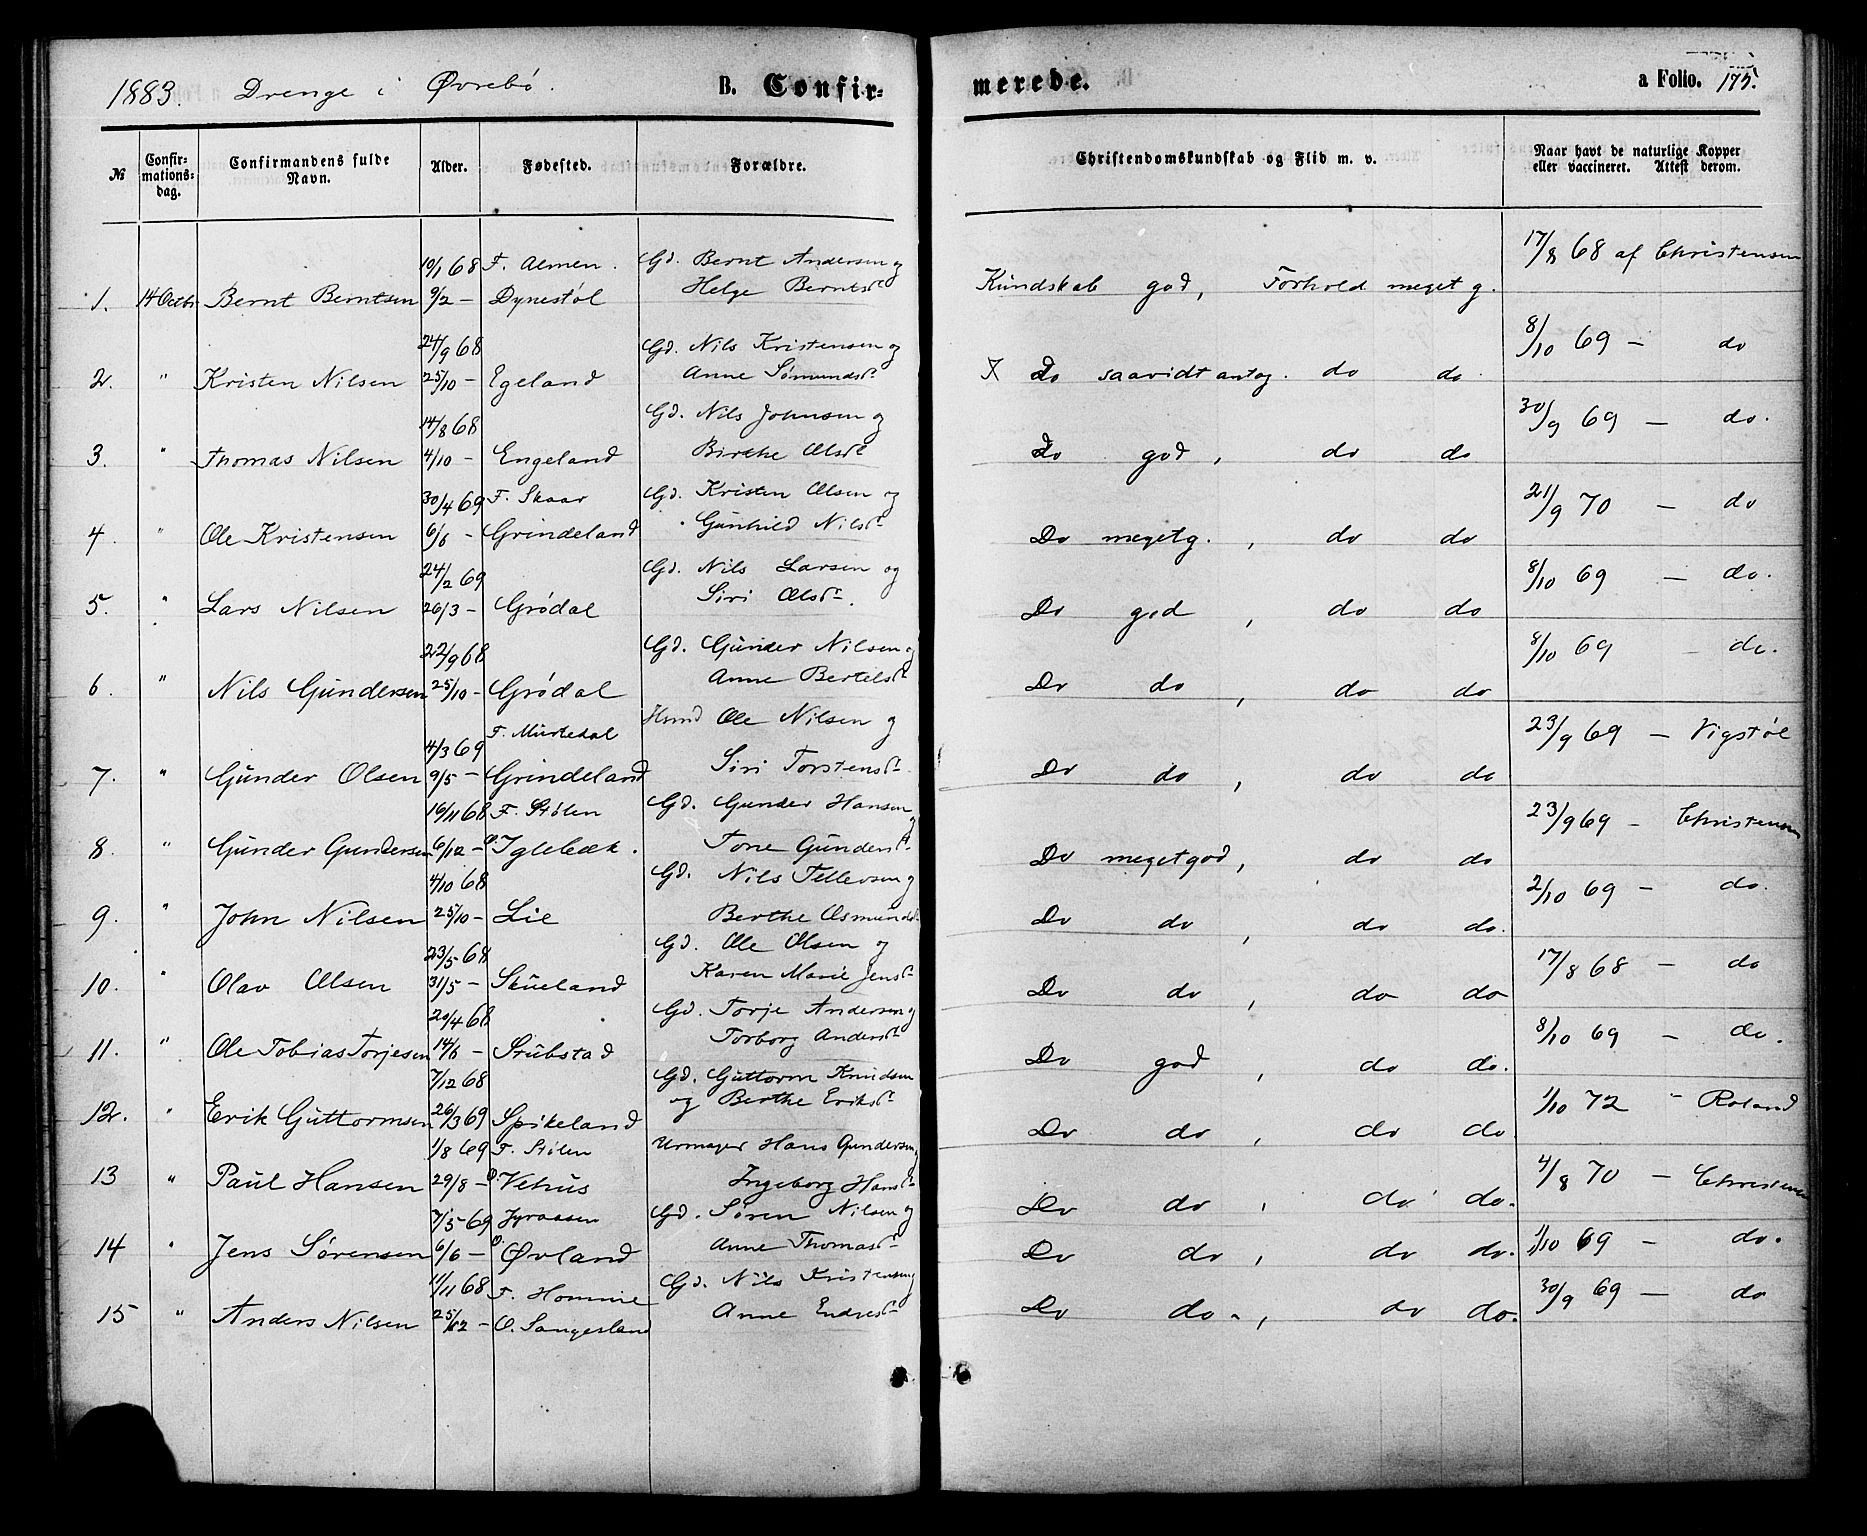 1883. Drenge i Øvrebø. B. Confir- merede. a Folio. 175.
№ Confir-mations-dag. Confirmandens fulde Navn. Alder. Fødested. Forældre. Christendomskundskab og Flid m. v. Naar havt de naturlige Kopper eller vaccineret. Attest derom.
10/1 68 F. Almen. Gd. Bernt Andersen og 17/8 68 af Christensen
1. 14 Octbr Bernt Berntsen 9/2 — Dynestøl Helge Berntsd. Kundskab god, Forhold meget g.
24/9 68 Gd. Nils Kristensen og 8/10 69 — do
2. " Kristen Nilsen 25/10 — Egeland Anne Sømundsd. X Do saavidt antag. do do
14/8 68 Gd. Nils Johnsen og 30/9 69 — do.
3. " Thomas Nilsen 4/10 — Engeland Birthe Olsd. Do god, do do
30/4 69 F. Skaar Gd. Kristen Olsen og 21/9 70 — do
4. " Ole Kristensen 6/6 — Grindeland Gunhild Nilsd. Do meget g., do do
24/2 69 Gd. Nils Larsen og 8/10 69 — do.
5. " Lars Nilsen 26/3 — Grødal Siri Olsd. Do god, do do
22/9 68 Gd. Gunder Nilsen og 8/10 69 — do.
6. " Nils Gundersen 25/10 — Grødal Anne Bertelsd. Do do, do do
4/3 69 F. Murtedal Husmd Ole Nilsen og 23/9 69 — Vigstøl
7. " Gunder Olsen 9/5 — Grindeland Siri Torstensd. Do do, do do
16/11 68 F. Stølen Gd. Gunder Hansen og 23/9 69 — Christensen
8. " Gunder Gundersen 6/12 — O. Iglebæk. Tone Gundersd. Do meget god, do do
4/10 68 Gd. Nils Tellevsen og 2/10 69 — do.
9. " John Nilsen 25/10 — Lie Berthe Osmundsd. Do do, do do.
23/5 68 Gd. Ole Olsen og 17/8 68 — do
10. " Olav Olsen 31/5 — Skueland Karen Marie Jensd. Do do, do do
20/4 68 Gd. Torje Andersen og 8/10 69 — do.
11. " Ole Tobias Torjesen 14/6 — Stubstad Torborg Andersd. Do god, do do.
7/12 68 Gd. Guttorm Knudsen 1/10 72 " Roland
12. " Erik Guttormsen 26/3 69 Spikeland og Berthe Eriksd. Do do, do do.
1/8 69 F. Stølen Urmager Hans Gundersen og 4/8 70 — Christensen
13 " Paul Hansen 29/8 — O. Vehus Ingeborg Hansd. Do do, do do.
7/5 69 Gd. Søren Nilsen og 1/10 69 — do.
14 " Jens Sørensen 6/6 — O. Øvland Anne Thomasd. Do do, do do.
11/11 68 F. Homme Gd. Nils Kristensen og 30/9 69 — do
15 " Anders Nilsen 25/12 — O. Sangesland Anne Endresd. Do do, do do.